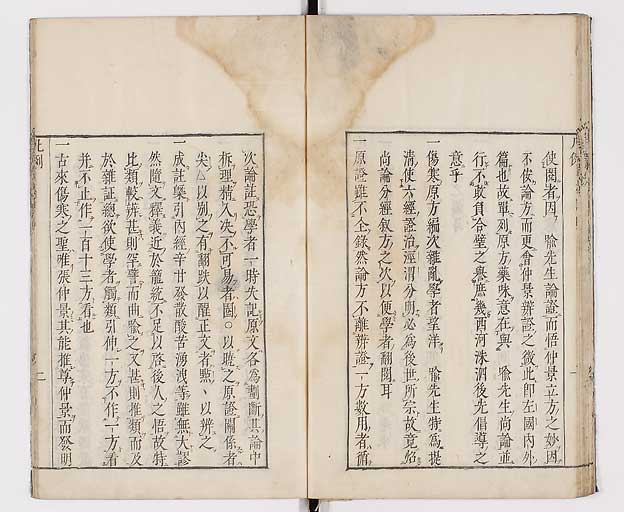 使閱者因 喻先生論證而悟仲景立方之妙因
不佞論方而更會仲景辨證之微此卽左國內外
篇也故單列原方藥味意在與 喻先生尚論並
行不敢負合璧之譽庶幾西河洙泗後先倡導之
意乎
一傷寒原方編次雜亂學者望洋 喻先生特為提
清使六經證治涇渭分明必為後世所宗故竟俲
尚論分經敘方之次以便學者翻閱耳
一原證雖不全錄然論方不離辨證一方數用者循
次論註恐學者一時失記原文各為劃斷其論中
拆理精入決不可易者圈○以聮之原證關係者
尖△以別之有翻跌以醒正文者點丶以辨之
一成註槩引內經辛甘發散酸苦湧洩等雖無大謬
然隨文釋義近於籠統不足以啓後人之悟故特
比類較辨甚則罕譬而曲喻之又甚則推類而及
於雜証總欲使學者觸類引伸一方不作一方看
并不止作一百十三方看也
一古來傷寒之聖唯張仲景其能推尊仲景而發明
凡例
二